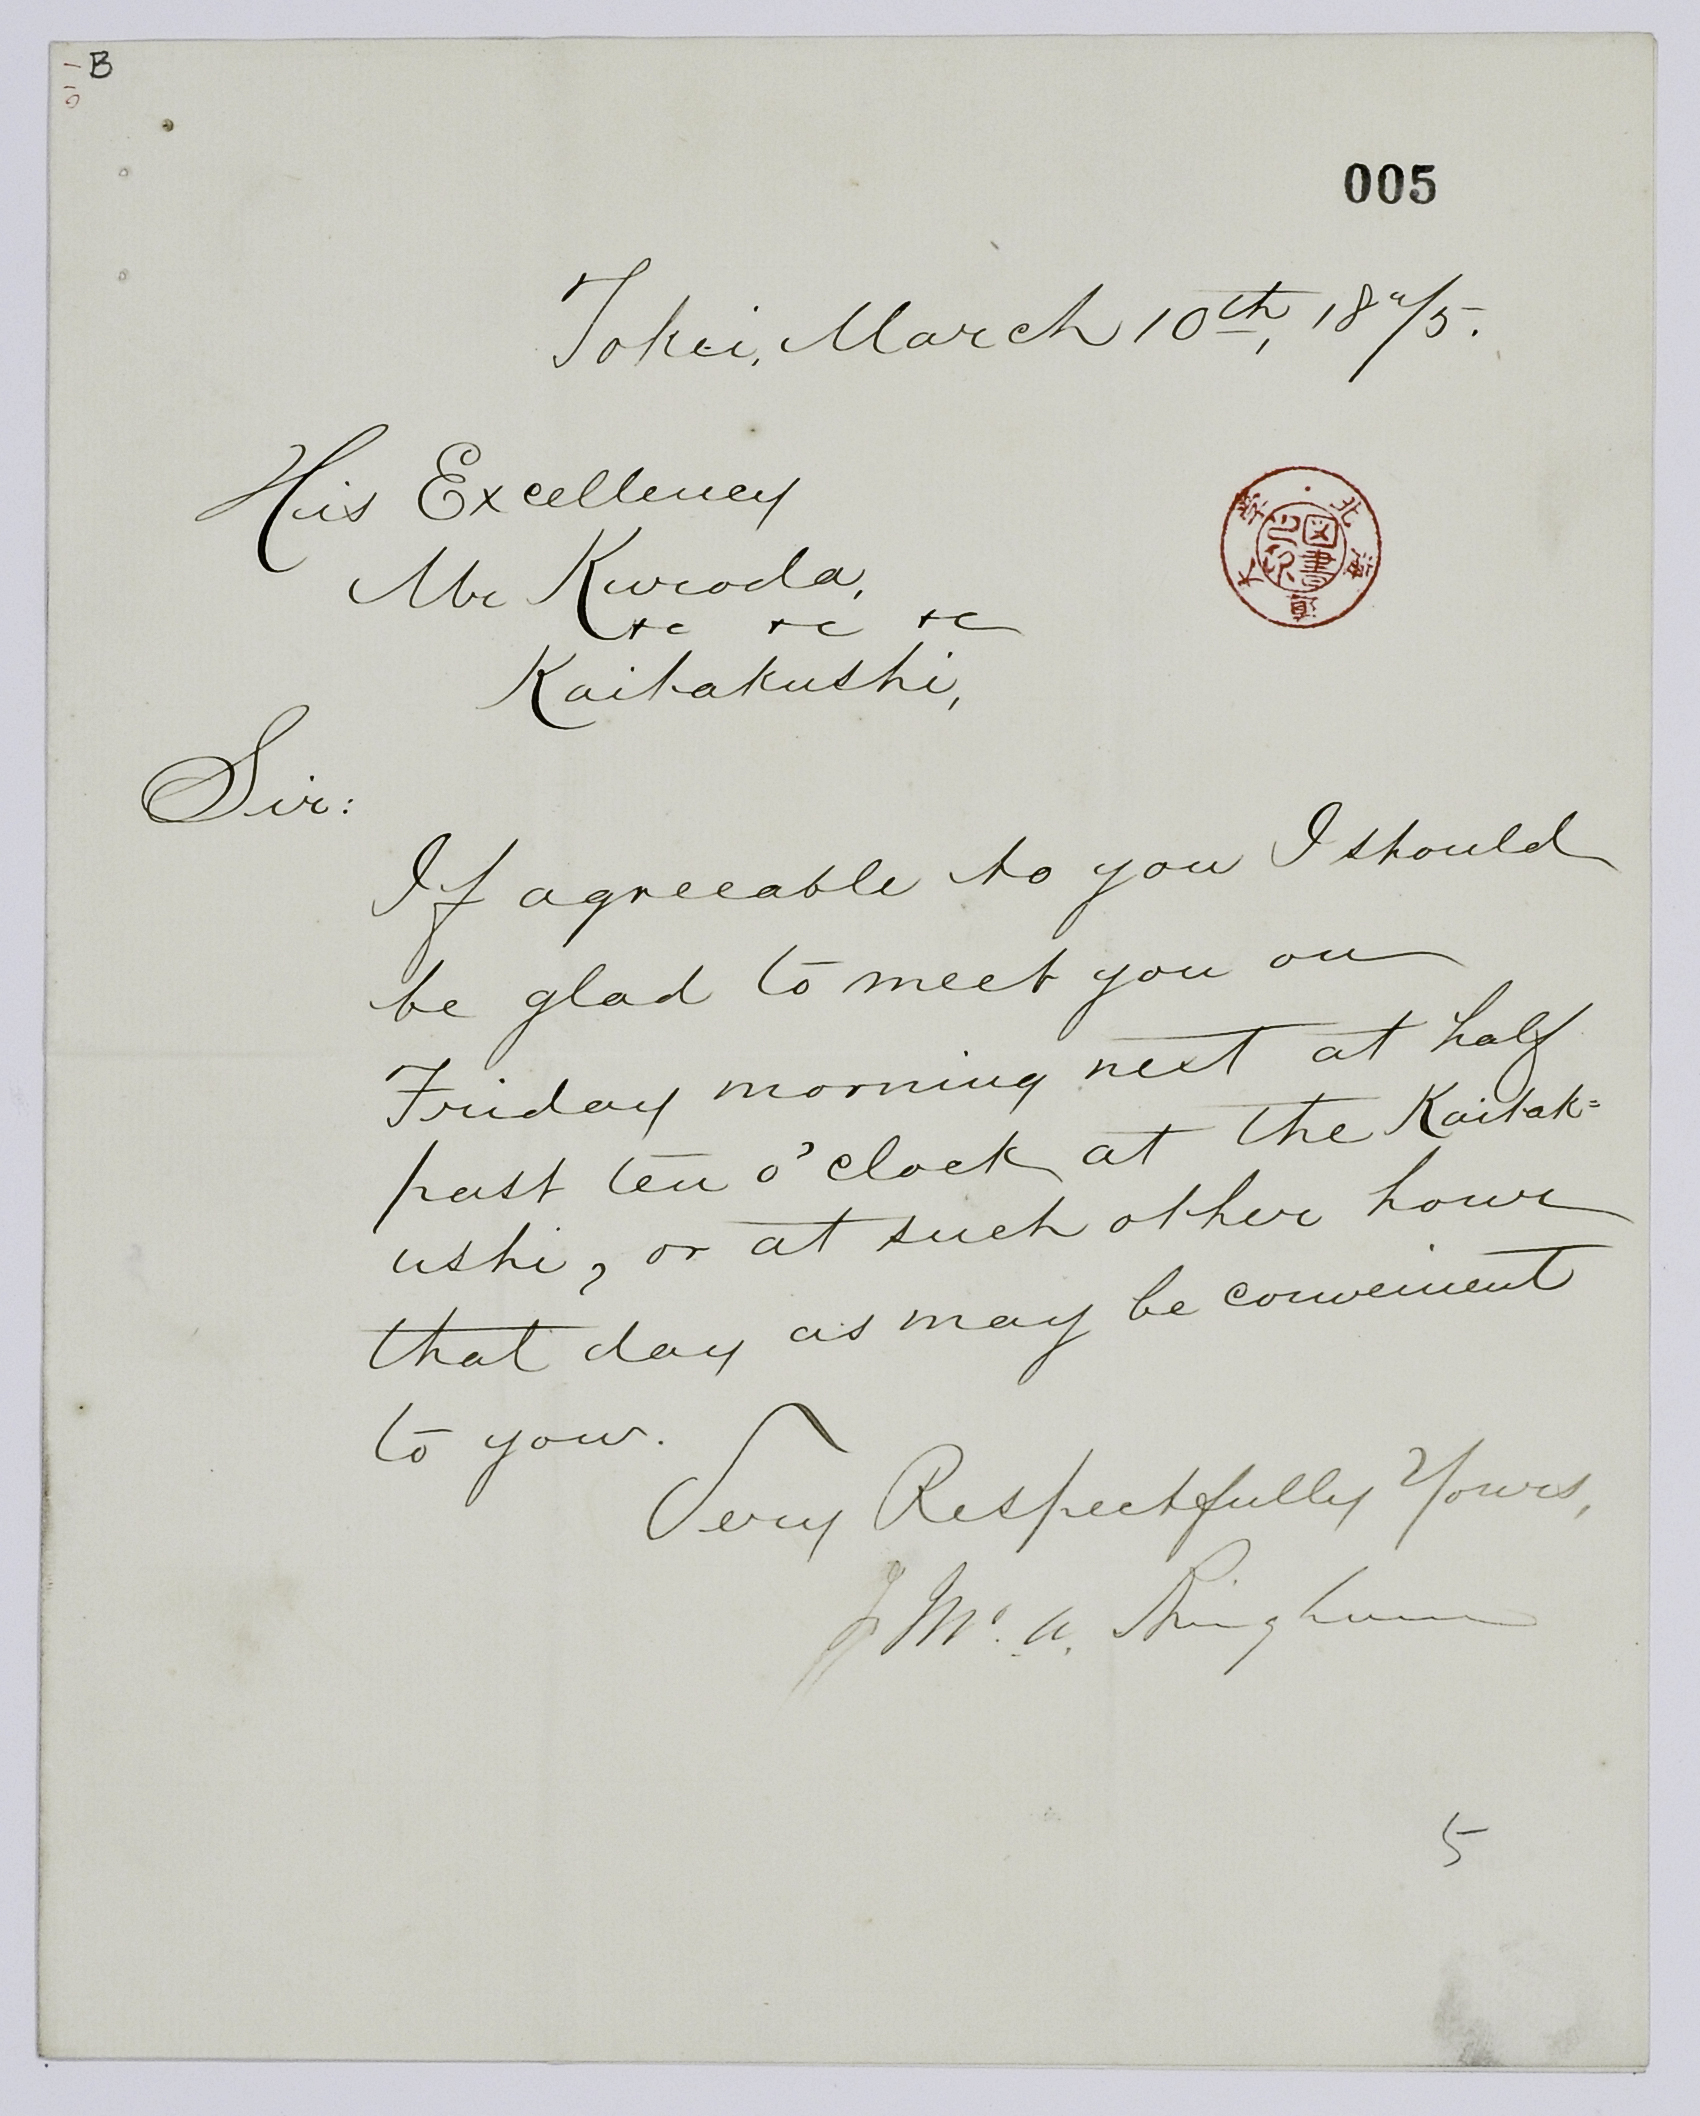 B
005
Tokei, March 10th, 18"/5.
His Excellency
Mr Kuroda,
&c &c &c
Kaitakushi,
北海道大学
図書
Sir:
If agreeable to you I should
be glad to meet you on
Friday morning next at half
past ten o'clock at the Kaitak=
ushi, or at such other hour
that day as may be convenient
to you.
Very Respectfully Yours,
Jno. A. Bingham
5